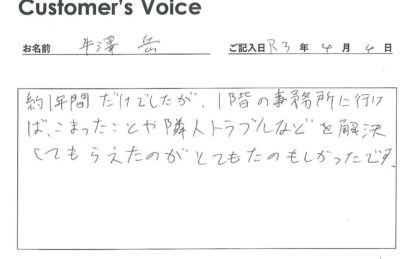 Customer's Voice
お名前 牛澤 岳 ご記入日 R3 年 4 月 4 日
約1年間だけでしたが、1階の事務所に行け
ば、こまったことや隣人トラブルなどを解決
してもらえたのがとてもたのもしかったです。